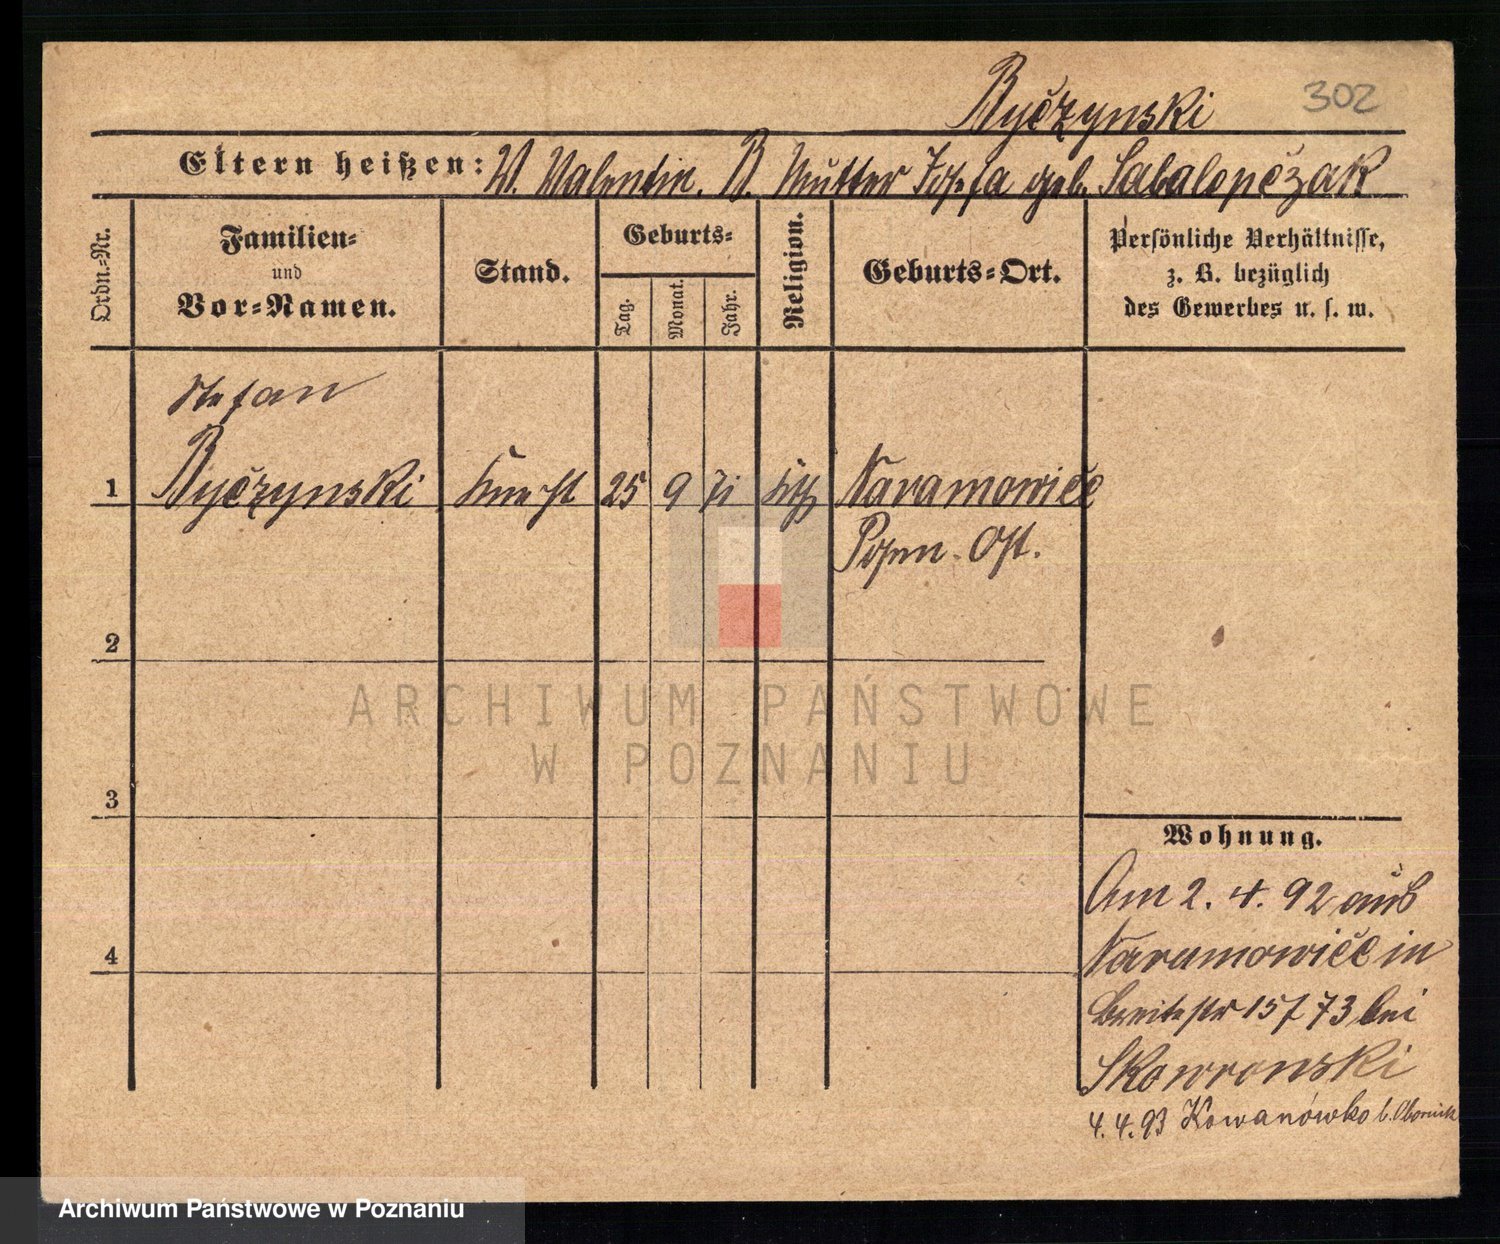 Ryčzynski 302
Eltern heißen: V. Valentin. R. Mutter Josefa geb. Sabalopčzak
Ordn.-Nr.
Familien-
und
Vor-Namen.
Stand.
Geburts-
Tag.
Monat.
Jahr.
Religion.
Geburts-Ort.
Persönliche Verhältnisse,
z. B. bezüglich
des Gewerbes u. s. w.
Stefan
1 Ryčzynski Knecht 25 9 71 kth Naramowičc
Posen. Ost.
2
3
4
ARCHIWUM PAŃSTWOWE
W POZNANIU
Wohnung.
Am 2. 4. 92 aus
Naramowičc in
Breitestr 15 / 73 bei
Skowronski
4. 4. 93 Kowanówko b. Obornik
Archiwum Państwowe w Poznaniu